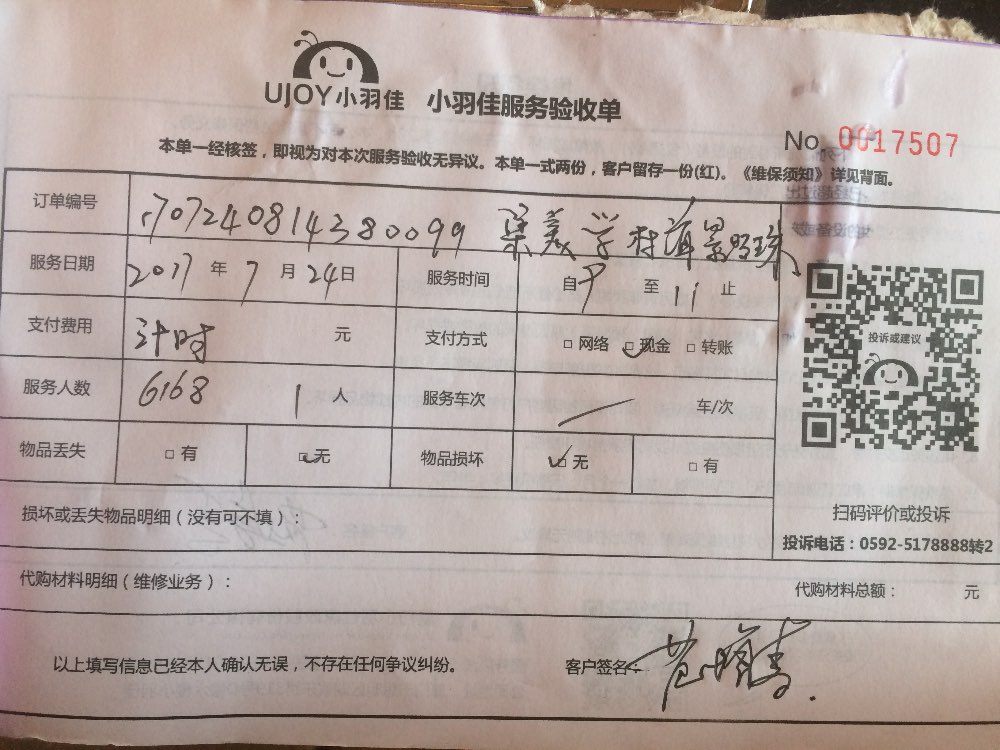 UJOY小羽佳 小羽佳服务验收单
No. 0017507
本单一经核签，即视为对本次服务验收无异议。本单一式两份，客户留存一份(红)。《维保须知》详见背面。
订单编号 1707240814380099 集美学村海景明珠
服务日期 2017 年 7 月 24 日 服务时间 自 9 至 11 止
支付费用 计时 元 支付方式 □ 网络 □ 现金 □ 转账
服务人数 6168 1 人 服务车次 车/次
物品丢失 □ 有 □ 无 物品损坏 □ 无 □ 有
投诉或建议
扫码评价或投诉
投诉电话：0592-5178888转2
损坏或丢失物品明细（没有可不填）：
代购材料明细（维修业务）： 代购材料总额： 元
以上填写信息已经本人确认无误，不存在任何争议纠纷。 客户签名：